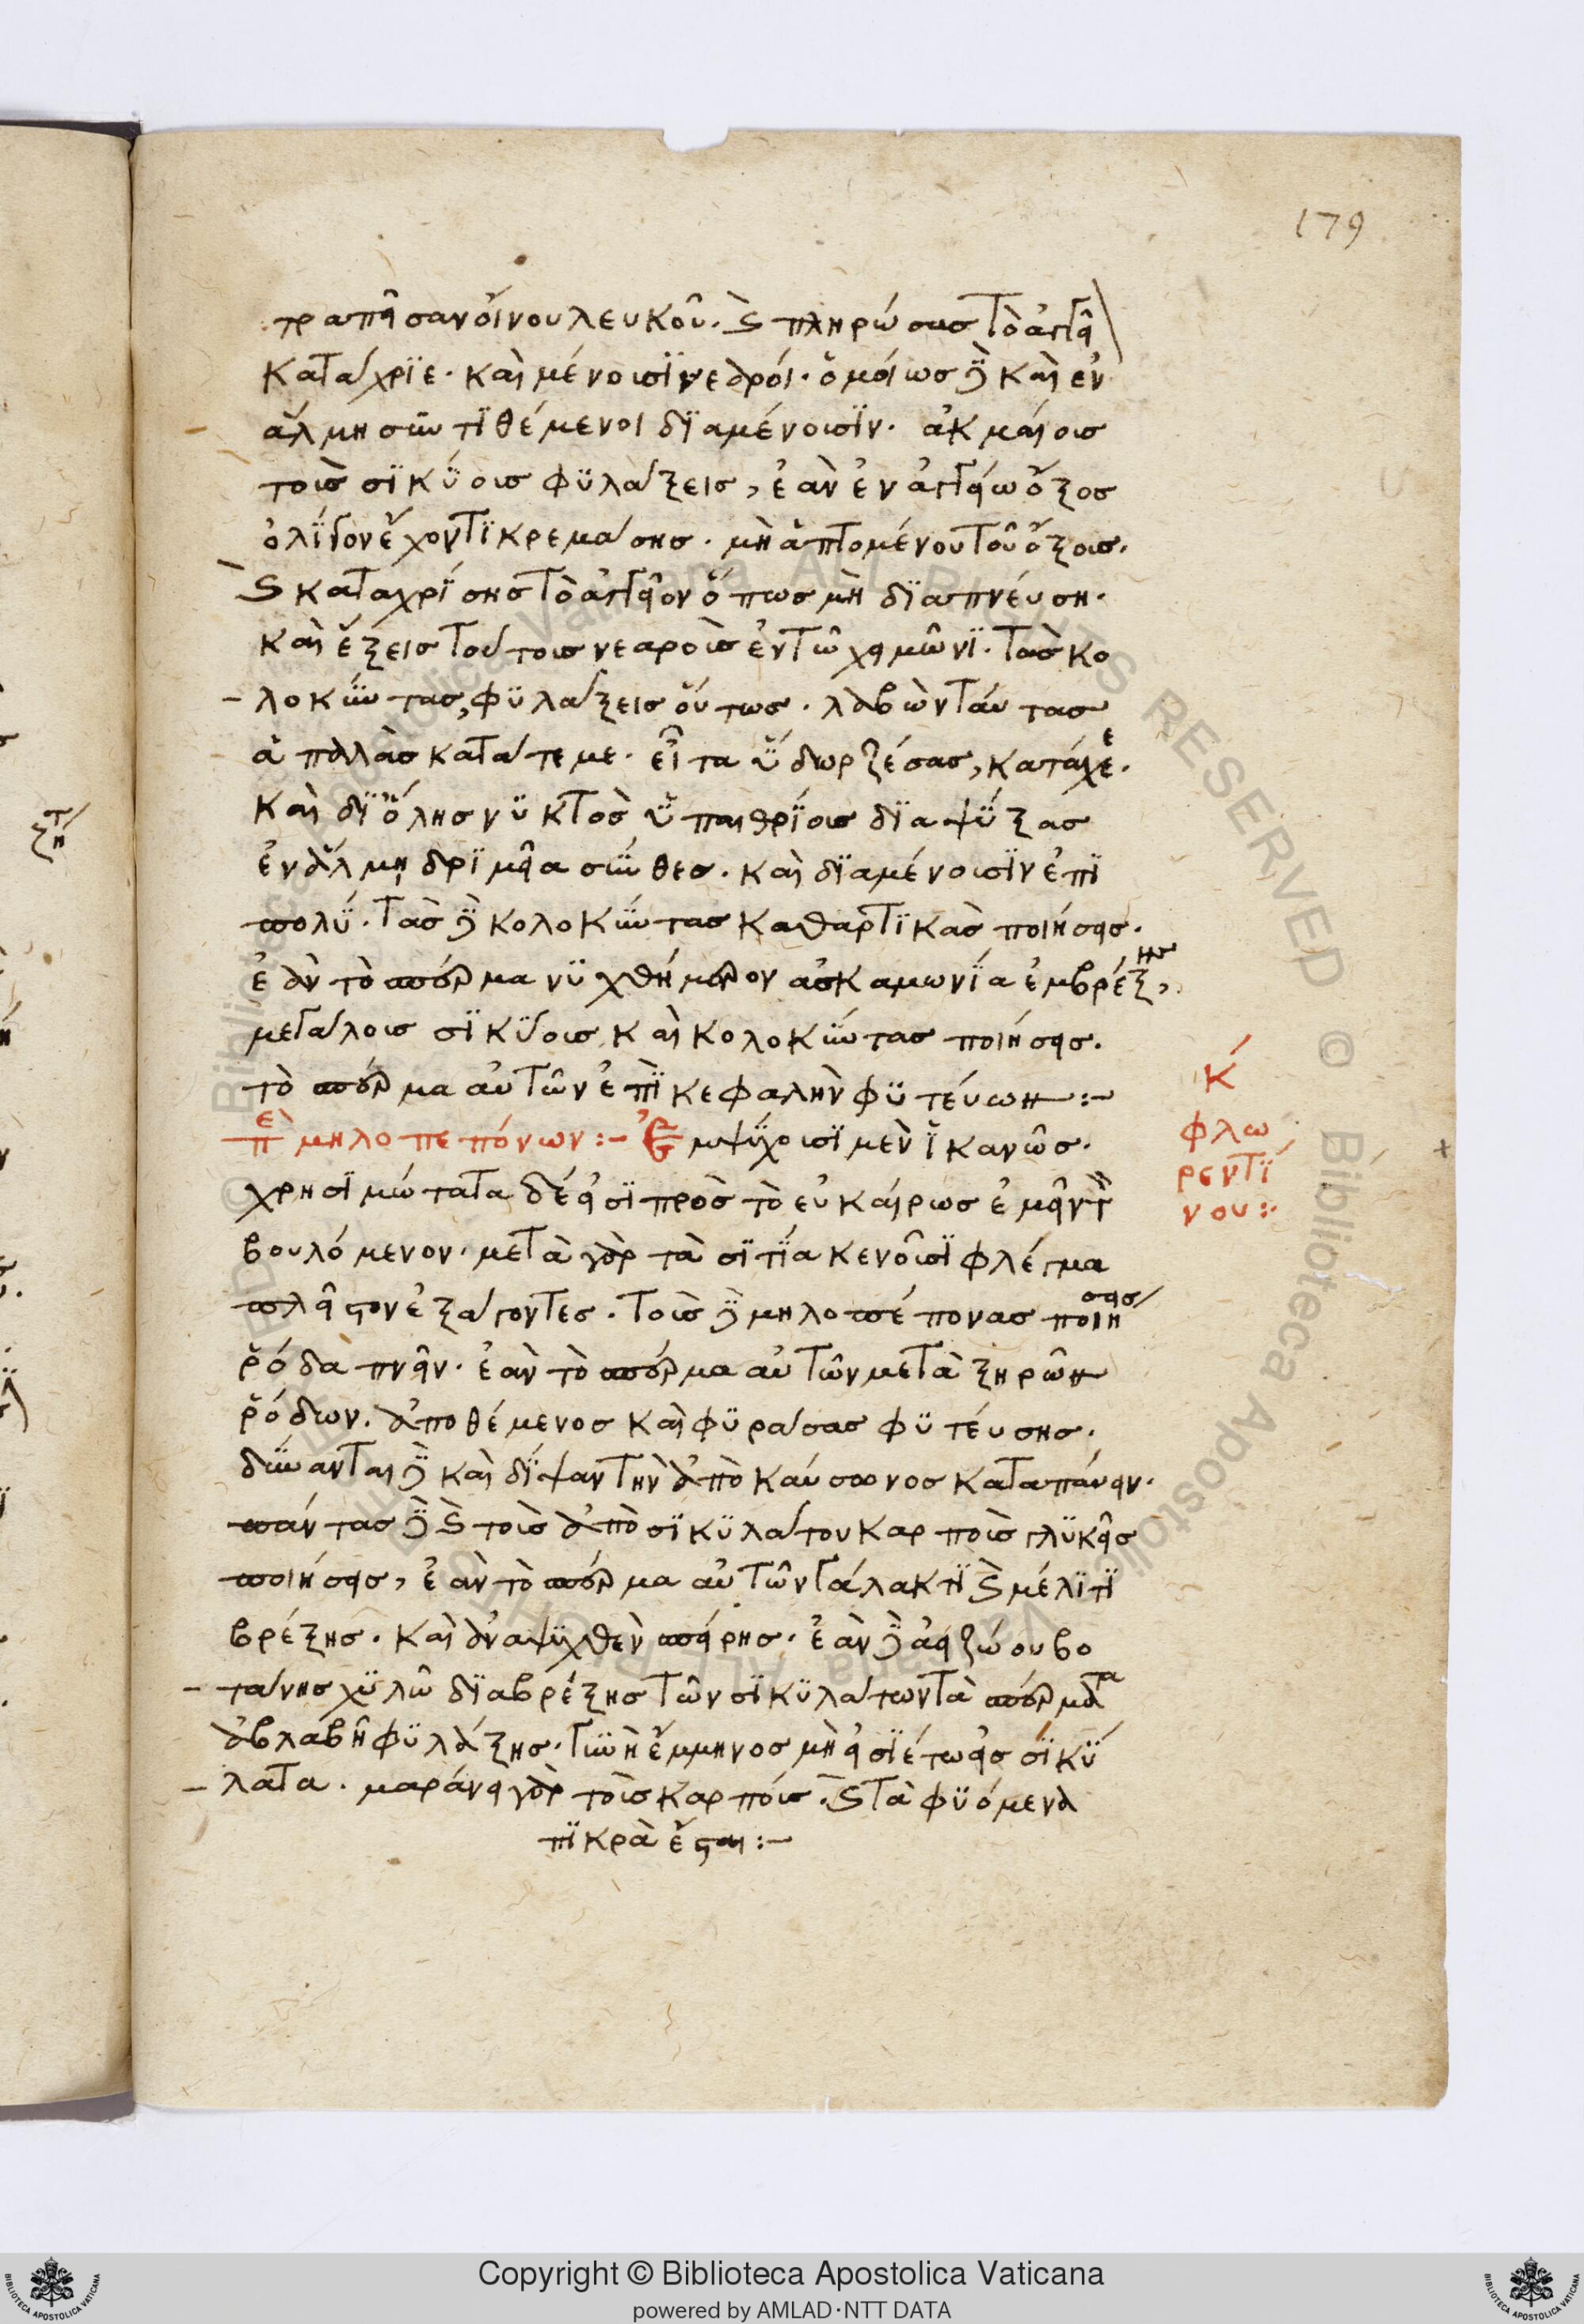 179
τραπεῖσαν οἴνου λευκοῦ. καὶ πληρώσας τὸ ἀγγεῖ
κατάχριε. καὶ μένουσϊ νεαροί. ὁμοίως δὲ καὶ ἐν
ἅλμη συντϊθέμενοι δϊαμένουσϊν. ἀκμαίους
τοὺς σϊκΰους φϋλάξεις, ἐὰν ἐν ἀγγείω ὄξος
ὀλΐγον ἔχοντϊ κρεμάσης. μὴ ἁπτομένου τοῦ ὄξους.
καὶ καταχρΐσης τὸ ἀγγεῖον ὅπως μὴ δϊαπνεύση.
καὶ ἕξεις τούτους νεαροὺς ἐν τῶ χειμῶνϊ. τὰς κο
λοκϋντας, φϋλάξεις οὕτως. λαβὼν ταύτας
ἁπαλὰς κατάτεμε. εἶτα ὕδωρ ζέσας, κατάχεε.
καὶ δϊ' ὅλης νϋκτὸς ὑπαιθρΐους δϊαψΰξας
ἐν ἅλμη δρϊμεῖα σΰνθες. καὶ δϊαμένουσϊν ἐπϊ
πολΰ. τὰς δὲ κολοκΰντας καθαρτϊκὰς ποιήσεις.
ἐὰν τὸ σπέρμα νϋχθήμερον ἀσκαμωνΐα ἐμβρέξης,
μεγάλους σϊκΰους καὶ κολοκΰντας ποιήσεις.
τὸ σπέρμα αὐτῶν ἐπὶ κεφαλὴν φϋτεύων:-
πε μηλοπεπόνων:- Ἐμψΰχουσϊ μὲν ἱκανῶς.
χρησϊμώτατα δέ εἰσϊ πρὸς τὸ εὐκαίρως ἐμεῖν τὸν
βουλόμενον. μετὰ γὰρ τὰ σϊτΐα κενοῦσϊ φλέγμα
πλεῖστον ἐξάγοντες. τοὺς δὲ μηλοπέπονας ποιήσεις
ῥόδα πνεῖν. ἐὰν τὸ σπέρμα αὐτῶν μετὰ ξηρῶν
ῥόδων. ἀποθέμενος καὶ φϋράσας φϋτεύσης.
δΰνανται δὲ καὶ δΐψαν τὴν ἀπὸ καύσωνος καταπαύειν.
πάντας δὲ καὶ τοὺς ἀπὸ σϊκϋλάτου καρποὺς γλϋκεῖς
ποιήσεις, ἐὰν τὸ σπέρμα αὐτῶν γάλακτϊ καὶ μέλϊτϊ
βρέξης. καὶ ἀναψϋχθὲν σπείρης. ἐὰν δὲ ἀειζώου βο
τάνης χϋλῶ δϊαβρέξης τῶν σϊκϋλάτων τὰ σπέρματα
ἀβλαβῆ φϋλάξης. γϋνὴ ἔμμηνος μὴ εἰσΐέτω εἰς σϊκϋ
λατα. μαράνει γὰρ τοὺς καρπούς. καὶ τὰ φϋόμενα
πϊκρὰ ἔσται:-
Κ
φλω
ρεντΐ
νου: